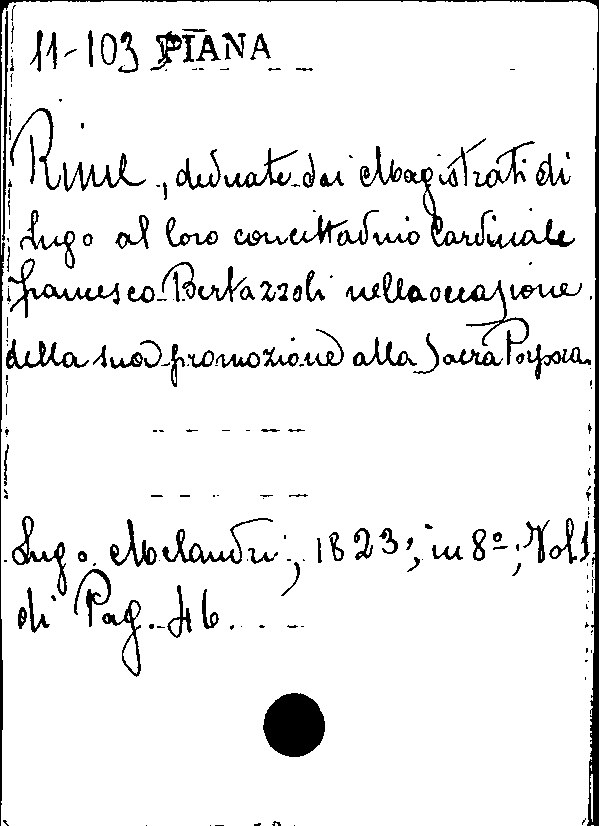 11-103 PIANA
Rime, dedicate dai Magistrati di
Lugo al loro concittadino Cardinale
Francesco Bertazzoli nella occasione
della sua promozione alla Sacra Porpora.
Lugo. Melandri, 1823, in 8º, Vol. 1
di Pag. 46.